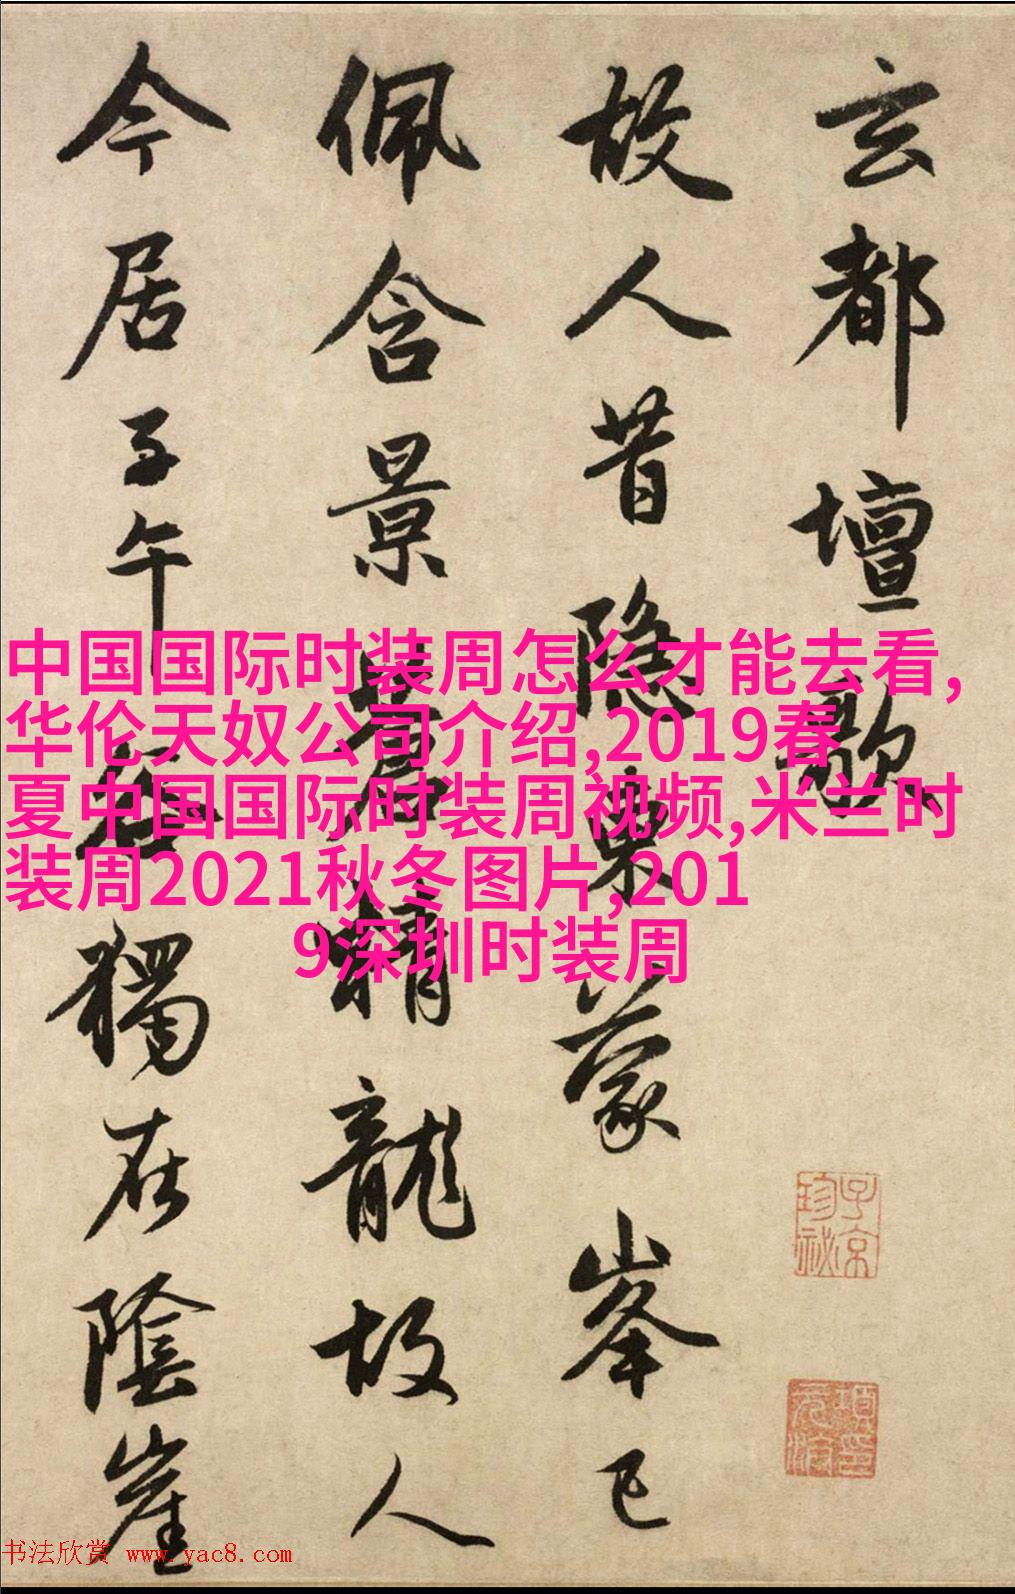 玄都壇歌
故人昔隐東蒙峯已
佩含景蒼精龍故人
今居子午谷獨在陰崖
中国国际时装周怎么才能去看,
华伦天奴公司介绍,2019春
夏中国国际时装周视频,米兰时
装周2021秋冬图片,201
9深圳时装周
子京
珍秘
书法欣赏 www.yac8.com